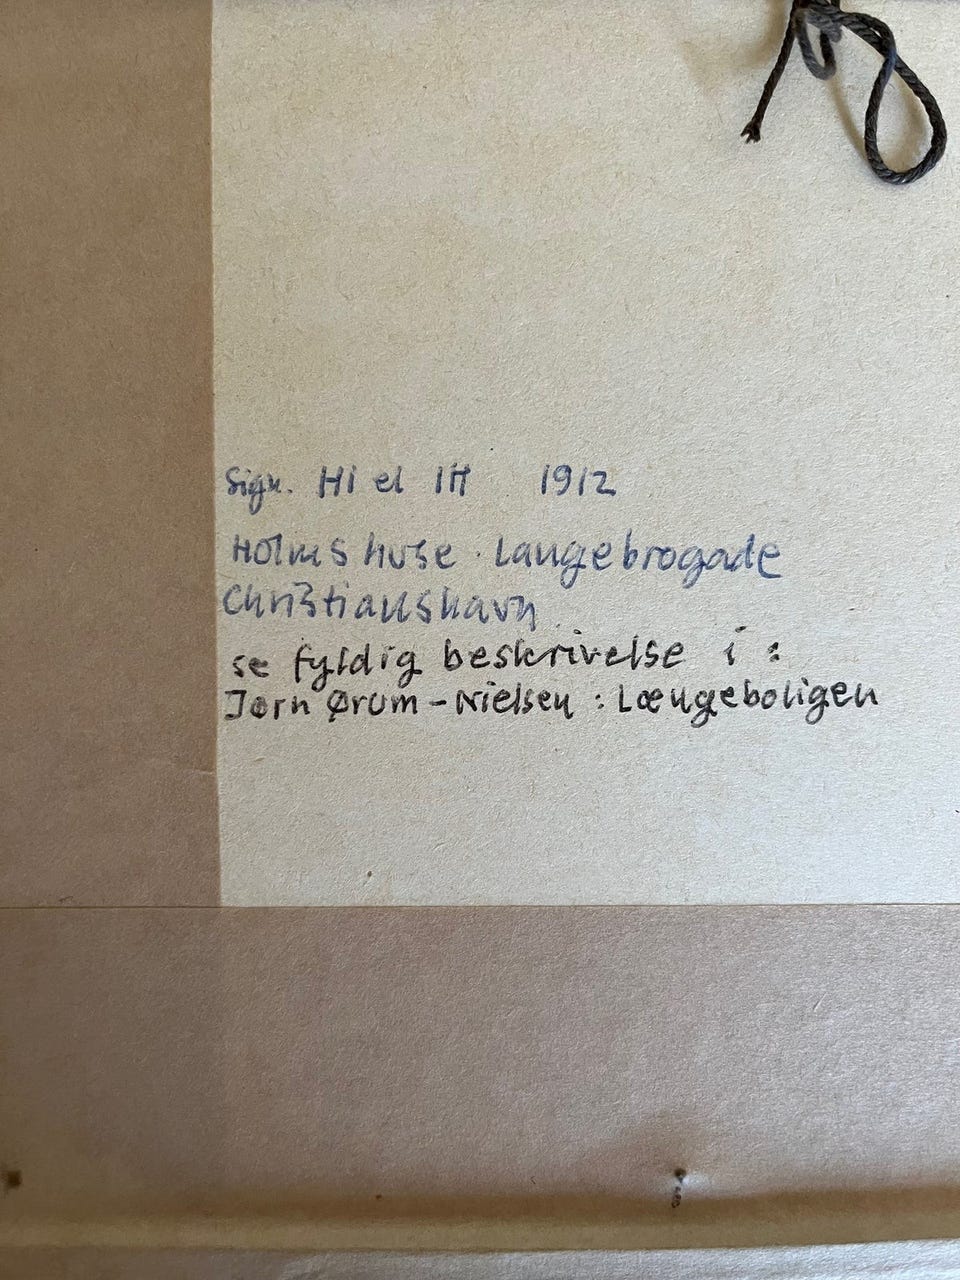 Sign. HI el IH 1912
Holms huse. Langebrogade
Christianshavn.
se fyldig beskrivelse i :
Jørn Ørum-Nielsen : Længeboligen